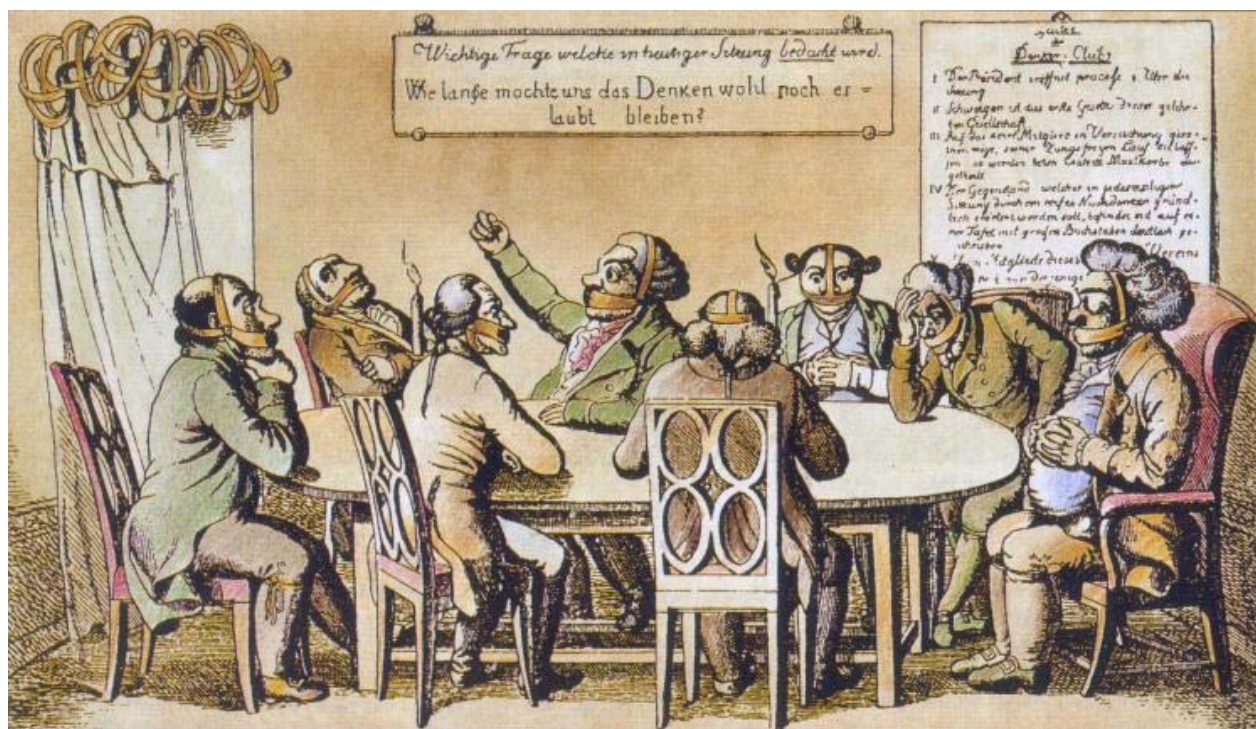 Wichtige Frage welche in heutiger Sitzung bedacht wird.
Wie lange möchte uns das Denken wohl noch er=
laubt bleiben?
Denker-Club
I Der Präsident eröffnet precise 8 Uhr die
Sitzung
II Schweigen ist das erste Gesetz dieser gelehr-
ten Gesellschaft
III Auf das kein Mitglied in Versuchung gera-
then möge, seiner Zunge freyen Lauf zu lass-
en so werden beim Maulkörbe aus-
getheilt
IV Der Gegenstand welcher in jedesmaliger
Sitzung durch ein reifes Nachdenken gründ-
lich erörtert werden soll, befindet sich auf ei-
ner Tafel mit großen Buchstaben deutlich ge-
schrieben
Mitglieder dieses Vereins